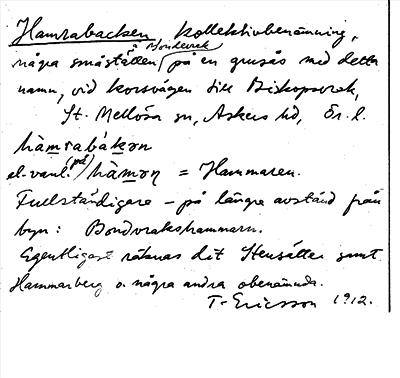 Hamrabacken kollektivbenämning,
å Bondevrak
några småställen på en grusås med detta
namn, vid korsvägen till Biskopsvrak,
St. Mellösa sn, Askers hd, Ör. l.
hàmrabákən
el. vanl. (på) hàmən = Hammaren.
Fullständigare – på längre avstånd från
byn: Bondvrakshammarn.
Egentligast räknas dit Stensätter samt
Hammarberg o. några andra obenämnda.
T. Ericsson 1912.